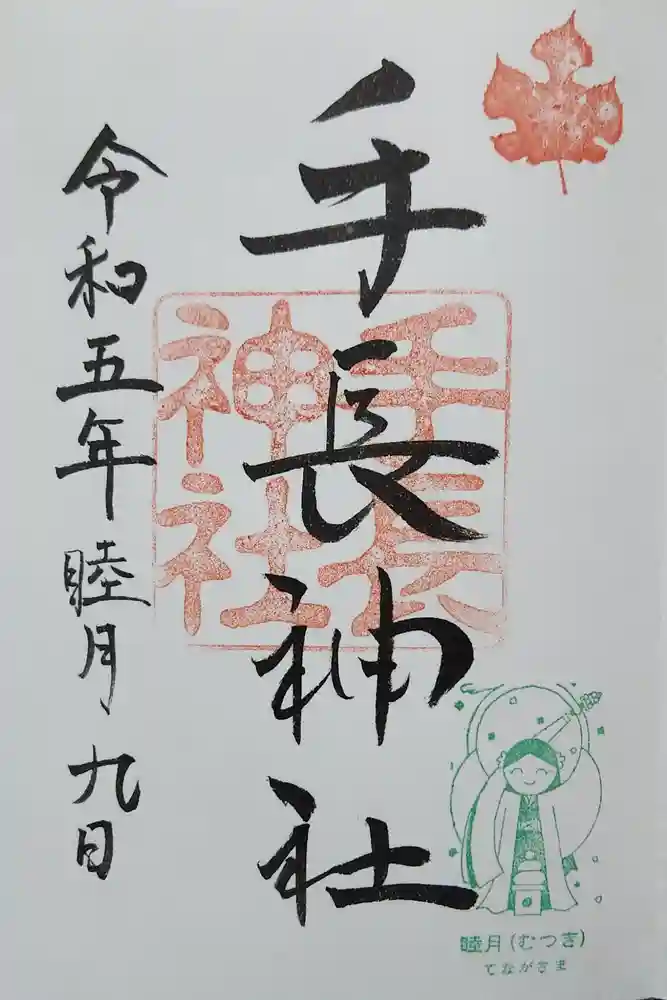 手長神社
手長
神社
令和五年睦月九日
睦月(むつき)
てながさま